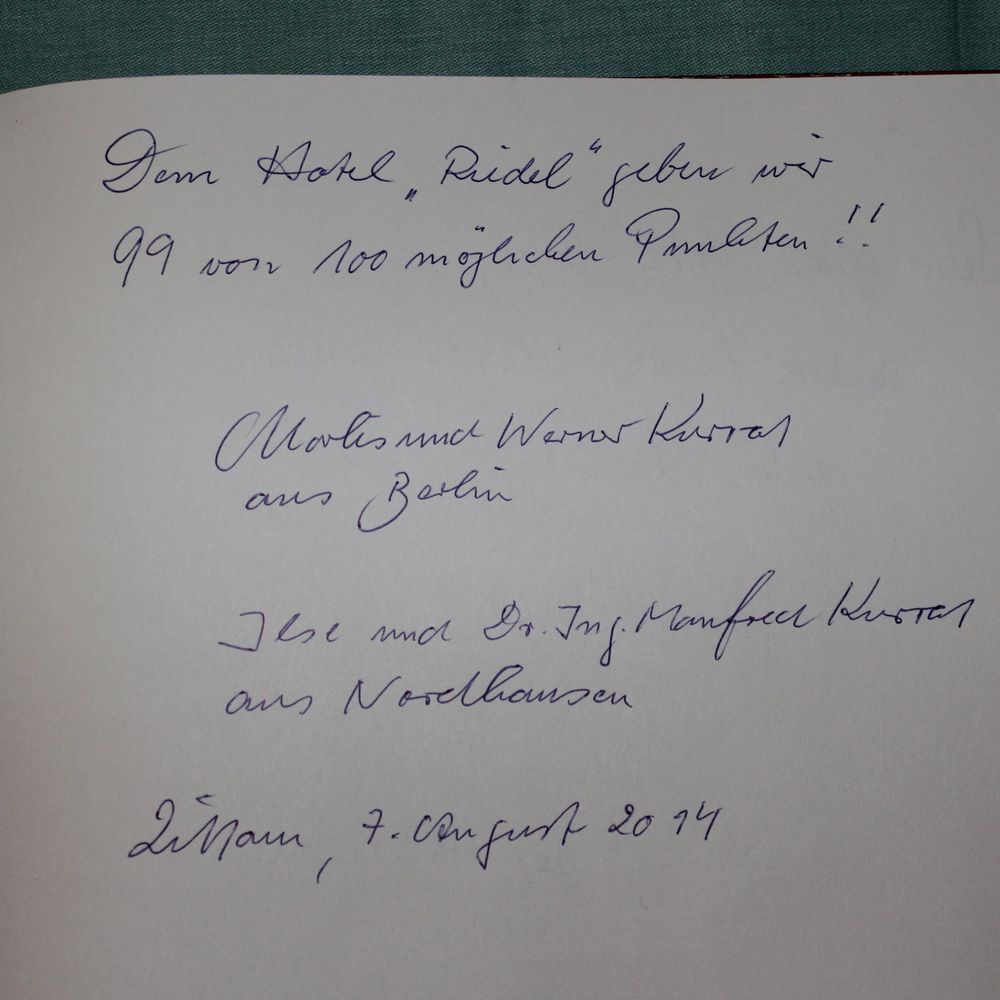 Dem Hotel „Riedel“ geben wir
99 von 100 möglichen Punkten!!
und Werner Kurrat
aus Berlin
Ilse und Dr. Ing. Manfred Kurrat
aus Nordhausen
Zittau, 7. August 2014